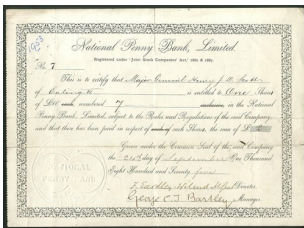 National Penny Bank, Limited
Registered under 'Joint Stock Companies' Act,' 1862 & 1867.
No. 7
This is to certify that Major General Henry Y. D. Scott
of Ealing W is entitled to One Share
of £10 each numbered 7 inclusive, in the National
Penny Bank, Limited, subject to the Rules and Regulations of the said Company,
and that there has been paid in respect of each of such Shares, the sum of £
Given under the Common Seal of the said Company
the 24th day of September One Thousand
Eight Hundred and Seventy five
Director
George C. T. Bartley Manager
NATIONAL
PENNY BANK